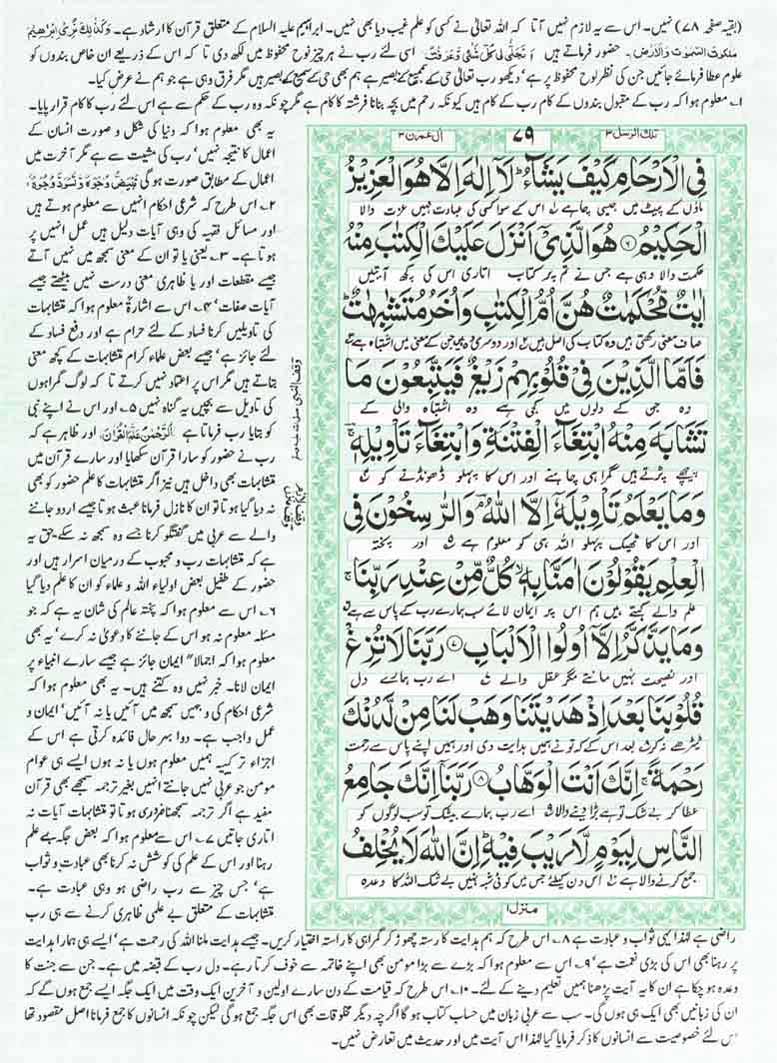 (بقیہ صفحہ ۷۸) نہیں۔ اس سے یہ لازم نہیں آتا کہ اللہ تعالیٰ نے کسی کو علم غیب دیا بھی نہیں۔ ابراہیم علیہ السلام کے متعلق قرآن کا ارشاد ہے۔ وَكَذٰلِكَ نُرِیْۤ اِبْرٰهِیْمَ
مَلَكُوْتَ السَّمٰوٰتِ وَالْاَرْضِ۔ حضور فرماتے ہیں اسی لئے رب نے ہر چیز لوح محفوظ میں لکھ دی تا کہ اس کے ذریعے ان خاص بندوں کو
علوم عطا فرمائے جائیں جن کی نظر لوح محفوظ پر ہے' دیکھو رب تعالیٰ حی سمیع بصیر ہے ہم بھی حی سمیع بصیر ہیں مگر فرق وہی ہے جو ہم نے عرض کیا۔
۱۔ معلوم ہوا کہ رب کے مقبول بندوں کے کام رب کے کام ہیں کیونکہ رحم میں بچہ بنانا فرشتہ کا کام ہے مگر چونکہ وہ رب کے حکم سے ہے اس لئے رب کا کام قرار پایا۔
تلك الرسل ۳
۷۹
ال عمرٰن ۳
فِی الْاَرْحَامِ كَیْفَ یَشَآءُ لَاۤ اِلٰهَ اِلَّا هُوَ الْعَزِیْزُ
ماؤں کے پیٹ میں جیسی چاہے اس کے سوا کسی کی عبادت نہیں عزت والا
الْحَكِیْمُ ۶ هُوَ الَّذِیْۤ اَنْزَلَ عَلَیْكَ الْكِتٰبَ مِنْهُ
حکمت والا وہی ہے جس نے تم پر کتاب اتاری اس کی کچھ آیتیں
اٰیٰتٌ مُّحْكَمٰتٌ هُنَّ اُمُّ الْكِتٰبِ وَاُخَرُ مُتَشٰبِهٰتٌ
صاف معنی رکھتی ہیں وہ کتاب کی اصل ہیں اور دوسری وہ ہیں جن کے معنی میں اشتباہ ہے
فَاَمَّا الَّذِیْنَ فِیْ قُلُوْبِهِمْ زَیْغٌ فَیَتَّبِعُوْنَ مَا
وہ جن کے دلوں میں کجی ہے وہ اشتباہ والی کے
تَشَابَهَ مِنْهُ ابْتِغَآءَ الْفِتْنَةِ وَابْتِغَآءَ تَاْوِیْلِهٖ
پیچھے پڑتے ہیں گمراہی چاہنے اور اس کا پہلو ڈھونڈنے کو
وَمَا یَعْلَمُ تَاْوِیْلَهٗۤ اِلَّا اللّٰهُ وَالرّٰسِخُوْنَ فِی
اور اس کا ٹھیک پہلو اللہ ہی کو معلوم ہے اور پختہ
الْعِلْمِ یَقُوْلُوْنَ اٰمَنَّا بِهٖ كُلٌّ مِّنْ عِنْدِ رَبِّنَا
علم والے کہتے ہیں ہم اس پر ایمان لائے سب ہمارے رب کے پاس سے ہے
وَمَا یَذَّكَّرُ اِلَّاۤ اُولُوا الْاَلْبَابِ ۷ رَبَّنَا لَا تُزِغْ
اور نصیحت نہیں مانتے مگر عقل والے اے رب ہمارے دل
قُلُوْبَنَا بَعْدَ اِذْ هَدَیْتَنَا وَهَبْ لَنَا مِنْ لَّدُنْكَ
ٹیڑھے نہ کر بعد اس کے کہ تو نے ہمیں ہدایت دی اور ہمیں اپنے پاس سے رحمت
رَحْمَةً اِنَّكَ اَنْتَ الْوَهَّابُ ۸ رَبَّنَاۤ اِنَّكَ جَامِعُ
عطا کر بے شک تو ہے بڑا دینے والا اے رب ہمارے بیشک تو سب لوگوں کو
النَّاسِ لِیَوْمٍ لَّا رَیْبَ فِیْهِ اِنَّ اللّٰهَ لَا یُخْلِفُ
جمع کرنے والا ہے اس دن کیلئے جس میں کوئی شبہ نہیں بے شک اللہ کا وعدہ
منزل ۱
یہ بھی معلوم ہوا کہ دنیا کی شکل و صورت انسان کے
اعمال کا نتیجہ نہیں' رب کی مشیت سے ہے مگر آخرت میں
اعمال کے مطابق صورت ہوگی تَبْیَضُّ وُجُوْهٌ وَّتَسْوَدُّ وُجُوْهٌ
۲۔ اس طرح کہ شرعی احکام انہیں سے معلوم ہوتے ہیں
اور مسائل فقہیہ کی وہی آیات دلیل ہیں عمل انہیں پر
ہوتا ہے۔ ۳۔ یعنی یا تو ان کے معنی سمجھ میں نہیں آتے
جیسے مقطعات اور یا ظاہری معنی درست نہیں بیٹھتے جیسے
آیات صفات' ۴۔ اس سے اشارۃً معلوم ہوا کہ متشابہات
کی تاویلیں کرنا فساد کے لئے حرام ہے اور دفع فساد کے
لئے جائز ہے' جیسے بعض علماء کرام متشابہات کے کچھ معنی
بتاتے ہیں مگر اس پر اعتماد نہیں کرتے تا کہ لوگ گمراہوں
کی تاویل سے بچیں یہ گناہ نہیں ۵۔ اور اس نے اپنے نبی
کو بتایا رب فرماتا ہے اَلرَّحْمٰنُ عَلَّمَ الْقُرْاٰنَ۔ اور ظاہر ہے کہ
رب نے حضور کو سارا قرآن سکھایا اور سارے قرآن میں
متشابہات بھی داخل ہیں نیز اگر متشابہات کا علم حضور کو بھی
نہ دیا گیا ہو تا تو ان کا نازل فرمانا عبث ہو تا جیسے اردو جاننے
والے سے عربی میں گفتگو کرنا جسے وہ سمجھ نہ سکے حق یہ
ہے کہ متشابہات رب و محبوب کے درمیان اسرار ہیں اور
حضور کے طفیل بعض اولیاء اللہ و علماء کو ان کا علم دیا گیا
۶۔ اس سے معلوم ہوا کہ پختہ عالم کی شان یہ ہے کہ جو
مسئلہ معلوم نہ ہو اس کے جاننے کا دعویٰ نہ کرے' یہ بھی
معلوم ہوا کہ اجمالاً ایمان جائز ہے جیسے سارے انبیاء پر
ایمان لانا۔ خبر نہیں وہ کتنے ہیں۔ یہ بھی معلوم ہوا کہ
شرعی احکام کی وجہیں سمجھ میں آئیں یا نہ آئیں' ایمان و
عمل واجب ہے۔ دوا بہر حال فائدہ کرتی ہے اس کے
اجزاء ترکیبیہ ہمیں معلوم ہوں یا نہ ہوں ایسے ہی عوام
مومنین جو عربی نہیں جانتے انہیں بغیر ترجمہ سمجھے بھی قرآن
مفید ہے اگر ترجمہ سمجھنا ضروری ہو تا تو متشابہات آیات نہ
اتاری جاتیں ۷۔ اس سے معلوم ہوا کہ بعض جگہ بے علم
رہنا اور اس کے علم کی کوشش نہ کرنا بھی عبادت و ثواب
ہے' جس چیز سے رب راضی ہو وہی عبادت ہے۔
متشابہات کے متعلق بے علمی ظاہری کرنے سے ہی رب
راضی ہے لہٰذا یہی ثواب و عبادت ہے ۸۔ اس طرح کہ ہم ہدایت کا رستہ چھوڑ کر گمراہی کا راستہ اختیار کریں۔ جیسے ہدایت ملنا اللہ کی رحمت ہے' ایسے ہی ہمارا ہدایت
پر رہنا بھی اس کی بڑی نعمت ہے' ۹۔ اس سے معلوم ہوا کہ بڑے سے بڑا مومن بھی اپنے خاتمہ سے خوف کرتا رہے۔ دل رب کے قبضہ میں ہے۔ جن سے جنت کا
وعدہ ہو چکا ہے ان کا یہ آیت پڑھنا ہمیں تعلیم دینے کے لئے۔ ۱۰۔ اس طرح کہ قیامت کے دن سارے اولین و آخرین ایک وقت میں ایک جگہ ایسے جمع ہوں گے کہ
ان کی زبانیں بھی ایک ہی ہوں گی۔ سب سے عربی زبان میں حساب کتاب ہو گا اگرچہ دیگر مخلوقات بھی اس جگہ جمع ہو گی لیکن چونکہ انسانوں کا جمع فرمانا اصل مقصود تھا
اس لئے خصوصیت سے انسانوں کا ذکر فرمایا گیا لہٰذا اس آیت میں اور حدیث میں تعارض نہیں۔